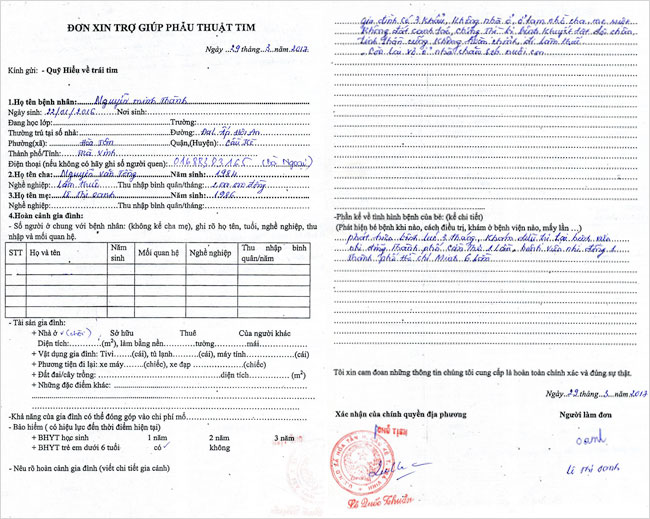 ĐƠN XIN TRỢ GIÚP PHẪU THUẬT TIM
Ngày 29 tháng 3 năm 2017
Kính gửi: - Quỹ Hiểu về trái tim
1.Họ tên bệnh nhân: Nguyễn minh Thành
Ngày sinh: 22/01/2016 Nơi sinh:
Đang học lớp: Trường:
Thường trú tại số nhà: Đường:
Phường(xã): Hòa Tân Quận,(Huyện): Cầu Kè
Thành phố/Tỉnh: Trà Vinh
Điện thoại (nếu không có hãy ghi số người quen): 01688383165 (Bà Ngoại)
2.Họ tên cha: Nguyễn Văn Năm sinh: 1984
Nghề nghiệp: Làm Thuê Thu nhập bình quân/tháng: đồng
3.Họ tên mẹ: Lê Thị oanh Năm sinh: 1986
Nghề nghiệp: Thu nhập bình quân/tháng:
4.Hoàn cảnh gia đình:
- Số người ở chung với bệnh nhân: (không kể cha mẹ), ghi rõ họ tên, tuổi, nghề nghiệp, thu
nhập và mối quan hệ.
STT Họ và tên Năm sinh Mối quan hệ Nghề nghiệp Thu nhập bình quân/năm
- Tài sản gia đình:
+ Nhà ở Sở hữu Thuê Của người khác
Diện tích: (m²), làm bằng nền tường mái
+ Vật dụng gia đình: Tivi (cái), tủ lạnh (cái), máy tính (cái)
+ Phương tiện đi lại: xe máy (chiếc), xe đạp (chiếc)
+ Đất đai/cây trồng: diện tích (m²)
+ Những đặc điểm khác:
-Khả năng của gia đình có thể đóng góp vào chi phí mổ
- Bảo hiểm ( có hiệu lực đến thời điểm hiện tại)
+ BHYT học sinh 1 năm 2 năm 3 năm
+ BHYT trẻ em dưới 6 tuổi có không
- Nêu rõ hoàn cảnh gia đình (viết chi tiết gia cảnh)
gia đình có 3 khẩu, không nhà ở, ở tạm nhà cha mẹ
không đất canh tác, chồng thì bị bệnh khuyết tật
tinh thần cũng không hoàn chỉnh, đi làm thuê
còn lại vợ ở nhà chăm sóc nuôi con
-Phần kể về tình hình bệnh của bé: (kể chi tiết)
(Phát hiện bé bệnh khi nào, cách điều trị, khám ở bệnh viện nào, mấy lần ...)
phát hiện bệnh lúc 3 tháng, khám điều trị tại bệnh viện
nhi đồng thành phố Cần Thơ 1 lần, bệnh viện nhi đồng 1
thành phố Hồ Chí Minh 6 lần
Tôi xin cam đoan những thông tin chúng tôi cung cấp là hoàn toàn chính xác và đúng sự thật.
Ngày 29 tháng 3 năm 2017
Xác nhận của chính quyền địa phương Người làm đơn
CHỦ TỊCH
oanh
Lê Thị oanh
Lê Quốc Thuần